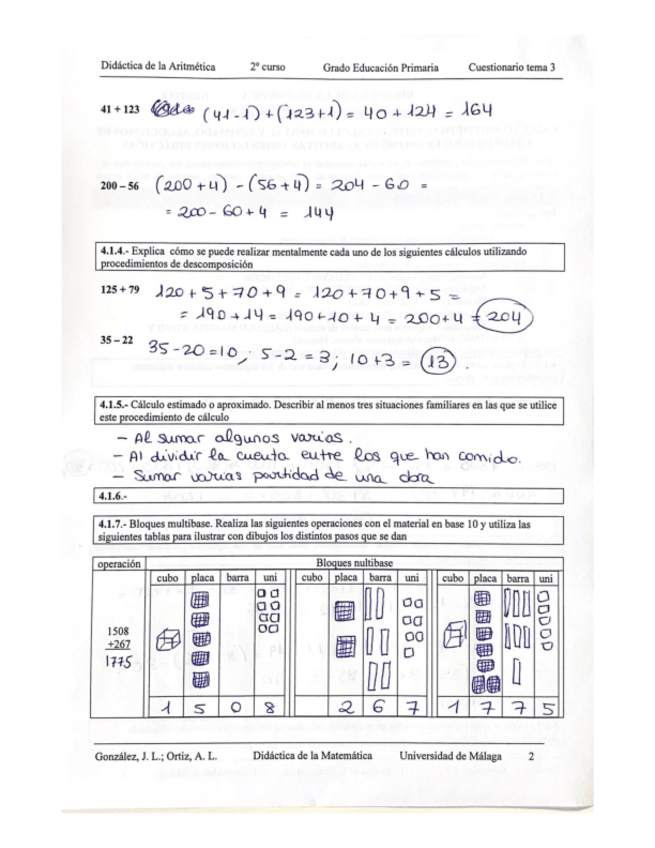 Didáctica de la Aritmética 2º curso Grado Educación Primaria Cuestionario tema 3
41 + 123 (41-1)+(123+1)= 40 + 124 = 164
200 – 56 (200+4) - (56+4) = 204 - 60 =
= 200 - 60 + 4 = 144
4.1.4.- Explica cómo se puede realizar mentalmente cada uno de los siguientes cálculos utilizando
procedimientos de descomposición
125 + 79 120 + 5 + 70 + 9 = 120 + 70 + 9 + 5 =
= 190 + 14 = 190 + 10 + 4 = 200 + 4 = 204
35 – 22 35-20=10; 5-2=3; 10+3=13.
4.1.5.- Cálculo estimado o aproximado. Describir al menos tres situaciones familiares en las que se utilice
este procedimiento de cálculo
- Al sumar algunos varias.
- Al dividir la cuenta entre los que han comido.
- Sumar varias partidad de una obra
4.1.6.-
4.1.7.- Bloques multibase. Realiza las siguientes operaciones con el material en base 10 y utiliza las
siguientes tablas para ilustrar con dibujos los distintos pasos que se dan
operación Bloques multibase
cubo placa barra uni cubo placa barra uni cubo placa barra uni
1508
+267
1775
1 5 0 8 2 6 7 1 7 7 5
González, J. L.; Ortiz, A. L. Didáctica de la Matemática Universidad de Málaga 2